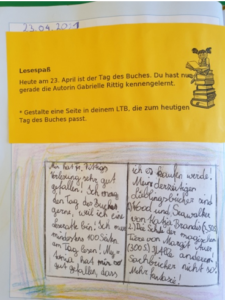 23.04.2021
Lesespaß
Heute am 23. April ist der Tag des Buches. Du hast
gerade die Autorin Gabrielle Rittig kennengelernt.
* Gestalte eine Seite in deinem LTB, die zum heutigen
Tag des Buches passt.
hat Fr. Rittigs
Vorlesung sehr gut
gefallen! Ich mag
den Tag des Buches
gerne, weil ich eine
bin! Ich
mindestens 100 Seiten
am Tag lesen!
hat mir
gut gefallen, dass
ich es kaufen werde!
Meine derzeitigen
Lieblingsbücher sind
und Seawalker
von Katja Brandis
Die Schule der magischen
Tiere von Margit Auer
alle anderen
Sachbücher nicht so